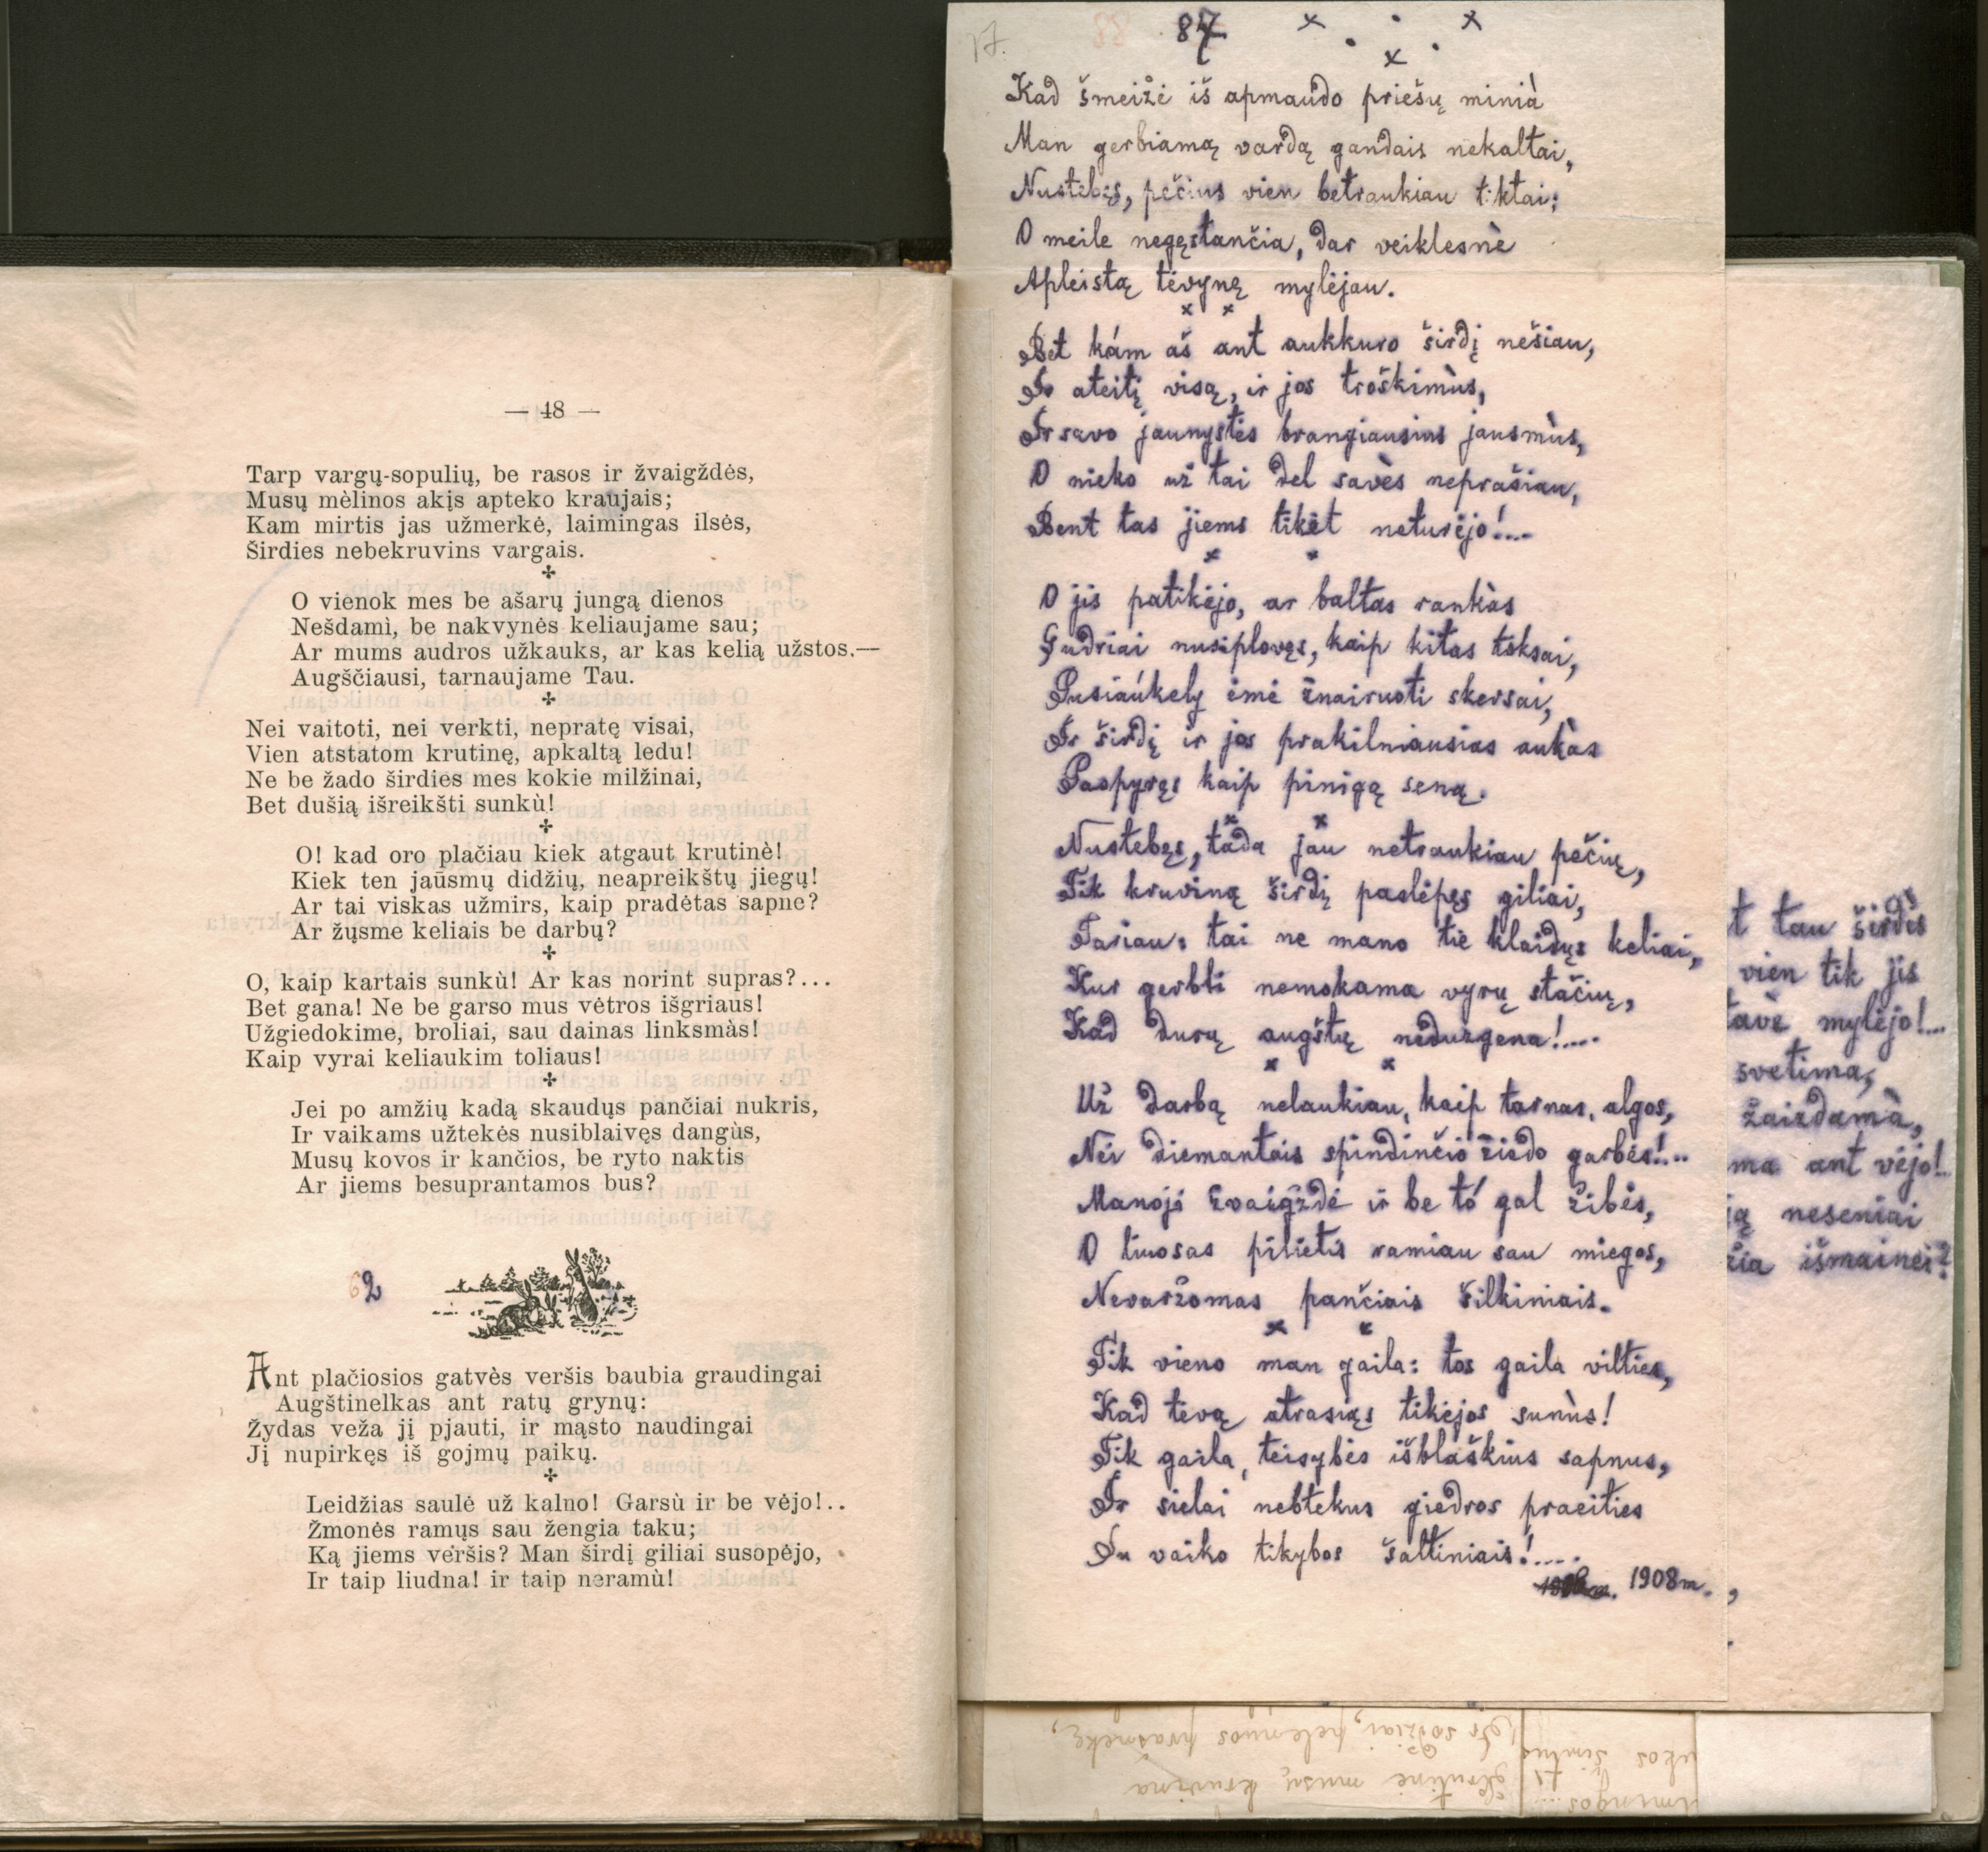 — 48 —
Tarp vargų-sopulių, be rasos ir žvaigždės,
Musų mėlinos akįs apteko kraujais;
Kam mirtis jas užmerkė, laimingas ilsės,
Širdies nebekruvins vargais.
O vienok mes be ašarų jungą dienos
Nešdami, be nakvynės keliaujame sau;
Ar mums audros užkauks, ar kas kelią užstos,—
Augščiausi, tarnaujame Tau.
Nei vaitoti, nei verkti, nepratę visai,
Vien atstatom krutinę, apkaltą ledu!
Ne be žado širdies mes kokie milžinai,
Bet dušią išreikšti sunkù!
O! kad oro plačiau kiek atgaut krutinè!
Kiek ten jaūsmų didžių, neapreikštų jiegų!
Ar tai viskas užmirs, kaip pradėtas sapne?
Ar žųsme keliais be darbų?
O, kaip kartais sunkù! Ar kas norint supras?...
Bet gana! Ne be garso mus vėtros išgriaus!
Užgiedokime, broliai, sau dainas linksmàs!
Kaip vyrai keliaukim toliaus!
Jei po amžių kadą skaudųs pančiai nukris,
Ir vaikams užtekės nusiblaivęs dangùs,
Musų kovos ir kančios, be ryto naktis
Ar jiems besuprantamos bus?
62
Ant plačiosios gatvės veršis baubia graudingai
Augštinelkas ant ratų grynų:
Žydas veža jį pjauti, ir mąsto naudingai
Jį nupirkęs iš gojmų paikų.
Leidžias saulė už kalno! Garsù ir be vėjo!..
Žmonės ramųs sau žengia taku;
Ką jiems veršis? Man širdį giliai susopėjo,
Ir taip liudna! ir taip neramù!
17.
87
Kad šmeižė iš apmaudo priešų minià
Man gerbiamą vardą gandais nekaltai,
Nustebęs, pečius vien betraukiau tiktai;
O meile negęstančia, dar veiklesnè
Apleistą tėvynę mylėjau.
Bet kám aš ant aukkuro širdį nešiau,
Ir ateitį visą, ir jos troškimùs,
Ir savo jaunystės brangiausius jausmùs,
O nieko už tai del savès neprašiau,
Bent tas jiems tikėt neturėjo!...
O jis patikėjo, ar baltas rankàs
Gudriai nusiplovęs, kaip kitas toksai,
Pusiaúkely ėmė žnairuoti skersai,
Ir širdį ir jos prakilniausias aukàs
Paspyręs kaip pinigą seną.
Nustebęs, tada jau netraukiau pečių,
Tik kruviną širdį paslėpęs giliai,
Tariau: tai ne mano tie klaidųs keliai,
Kur gerbti nemokama vyrų stačių,
Kad durų augštų nedurgena!....
Už darbą nelaukiau, kaip tarnas, algos,
Nei diemantais spindinčio žiedo garbės!...
Manoji žvaigždė ir be tó gal žibės,
O liuosas pilietis ramiau sau miegos,
Nevaržomas pančiais šilkiniais.
Tik vieno man gaila: tos gaila vilties,
Kad tėvą atrasiąs tikėjos sunùs!
Tik gaila, teisybės išblaškius sapnus,
Ir sielai nebtekus giedros praeities
Su vaiko tikybos šaltiniais!....
1908m.
t tau širdès
vien tik jis
tavè mylėjo!...
svetima,
žaizdamà,
ma ant vėjo!..
ią neseniai
išmainei?